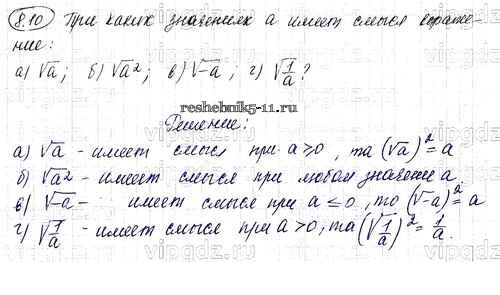 8.10 При каких значениях а имеет смысл выраже-
ние:
а) √a; б) √a²; в) √-a; г) √1/a?
reshebnik5-11.ru
Решение:
а) √a - имеет смысл при a≥0, та (√a)²=a
б) √a² - имеет смысл при любом значение a
в) √-a - имеет смысл при a≤0, то (√-a)²=a
г) √1/a - имеет смысл при a>0, та (√1/a)²=1/a.
vipgdz.ru